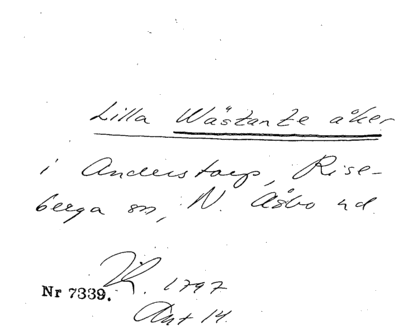 Lilla Wästante åker
i Anderstorp, Rise-
berga sn, N. Åsbo hd.
LR. 1797
Nr 7339.
Akt 14.